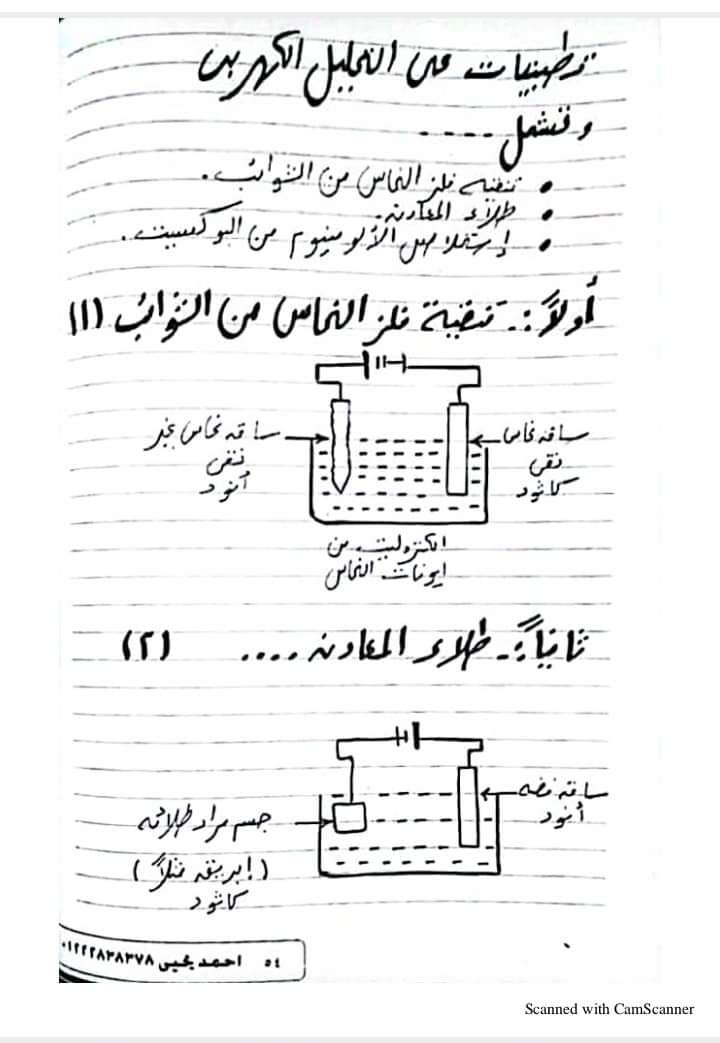 تطبيقات على التحليل الكهربى
وتشمل .....
• تنقية فلز النحاس من الشوائب.
• طلاء المعادن.
• إستخلاص الألومنيوم من البوكسيت.
أولاً:- تنقية فلز النحاس من الشوائب (١)
ساق نحاس
نقى
كاثود
ساق نحاس غير
نقى
أنود
الكتروليت من
ايونات النحاس
ثانياً:- طلاء المعادن .... (٢)
ساق فضه
أنود
جسم مراد طلائه
(إبريق مثلاً)
كاثود
٥٤ احمد يحيى ٠١٢٢٢٨٣٨٣٧٨
Scanned with CamScanner